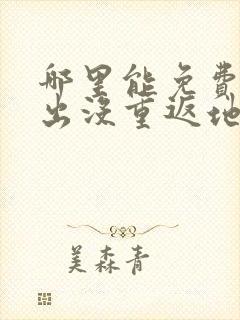 哪里能免费
出没重返地
美森青